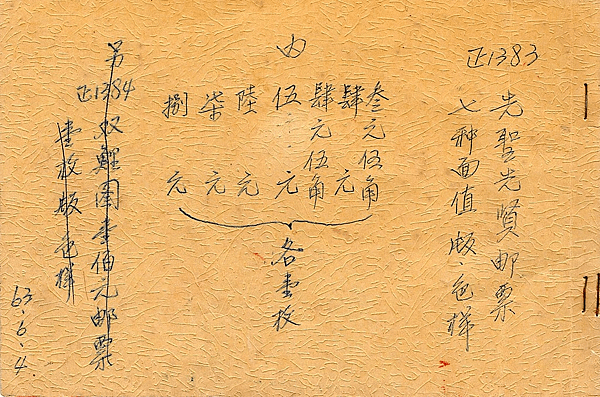 正1383
先聖先賢邮票
七种面值版色样
内
叁元伍角
肆元
肆元伍角
伍元
陸元
柒元
捌元
各壹枚
另
正1384双鯉图壹伯元邮票
壹枚版色样
63.6.4.